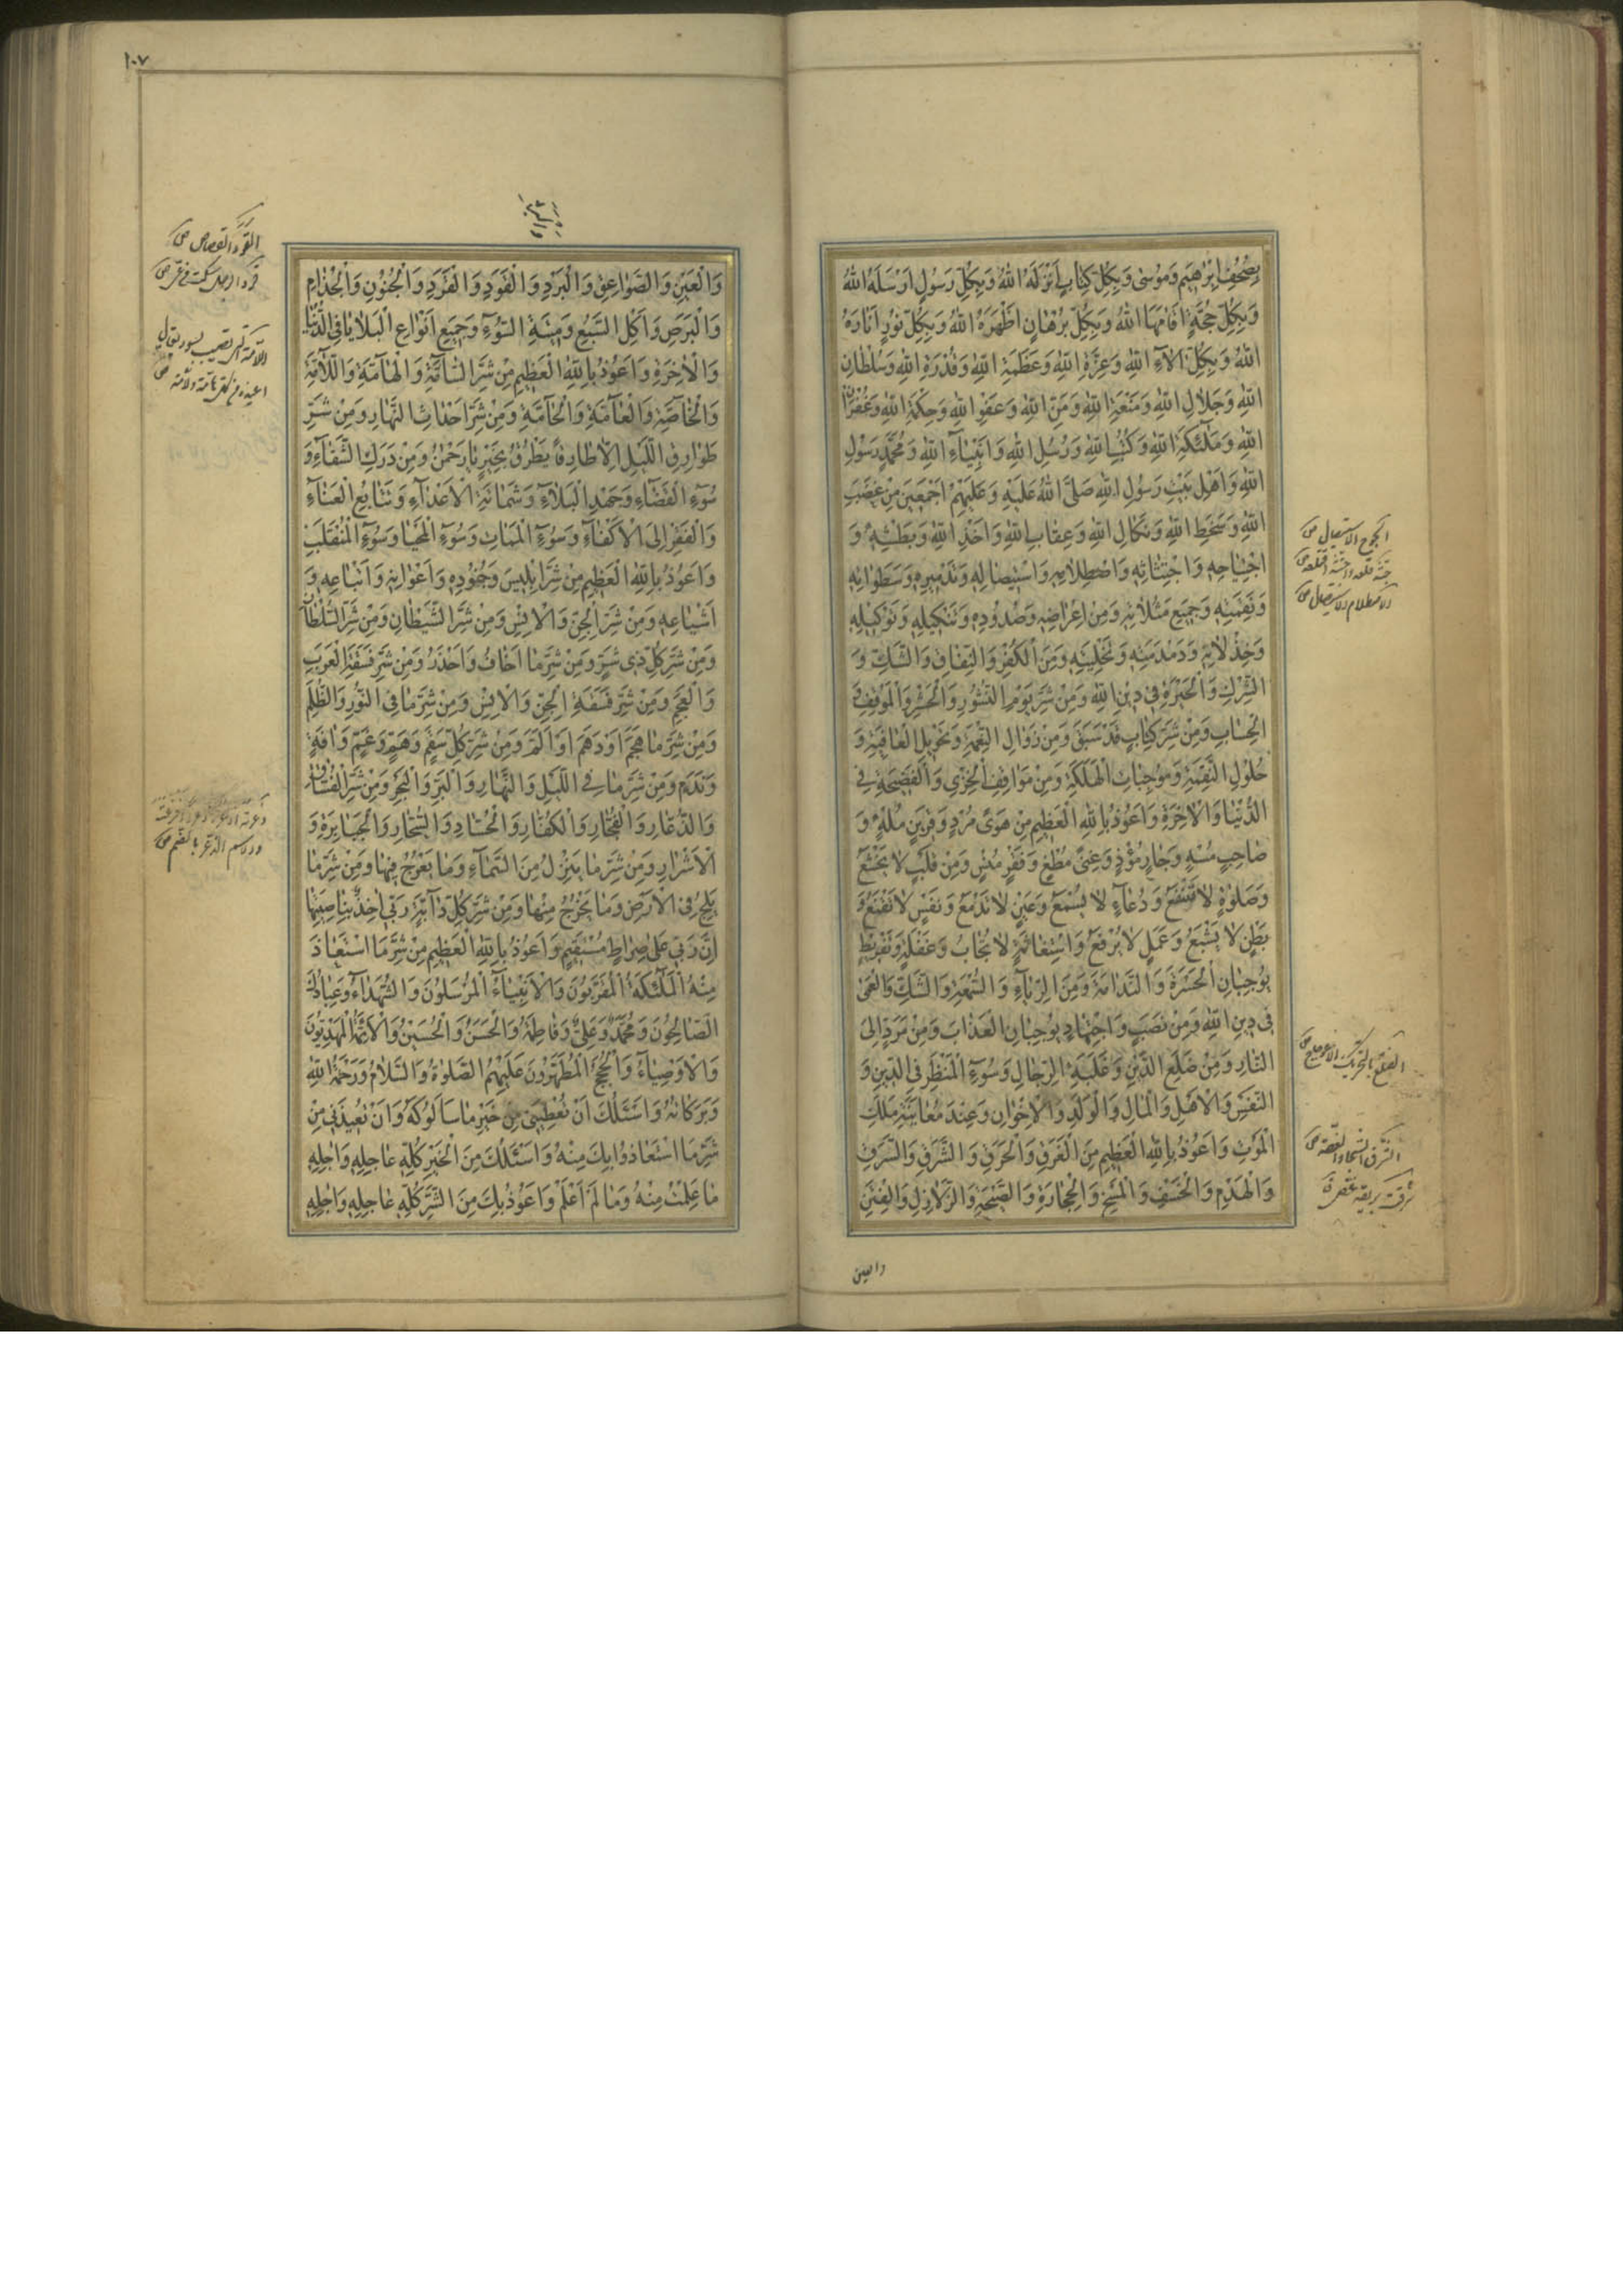 بِصُحُفِ اِبْرٰهيمَ وَمُوسٰى وَبِكُلِّ كِتٰابٍ اَنْزَلَهُ اللهُ وَبِكُلِّ رَسُولٍ اَرْسَلَهُ اللهُ
وَبِكُلِّ حُجَّةٍ اَقٰامَهَا اللهُ وَبِكُلِّ بُرْهٰانٍ اَظْهَرَهُ اللهُ وَبِكُلِّ نُورٍ اَنٰارَهُ
اللهُ وَبِكُلِّ اٰلاٰءِ اللهِ وَعِزَّةِ اللهِ وَعَظَمَةِ اللهِ وَقُدْرَةِ اللهِ وَسُلْطٰانِ
اللهِ وَجَلاٰلِ اللهِ وَمَنْعَةِ اللهِ وَمَنِّ اللهِ وَعَفْوِ اللهِ وَحِكْمَةِ اللهِ وَغُفْرٰانِ
اللهِ وَمَلٰٓئِكَةِ اللهِ وَكُتُبِ اللهِ وَرُسُلِ اللهِ وَاَنْبِيٰٓاءِ اللهِ وَمُحَمَّدٍ رَسُولِ
اللهِ وَاَهْلِ بَيْتِ رَسُولِ اللهِ صَلَّى اللهُ عَلَيْهِ وَعَلَيْهِمْ اَجْمَعينَ مِنْ غَضَبِ
اللهِ وَسَخَطِ اللهِ وَنَكٰالِ اللهِ وَعِقٰابِ اللهِ وَاَخْذِ اللهِ وَبَطْشِهِ وَ
اجْتِيٰاحِهِ وَاجْتِثٰاثِهِ وَاصْطِلاٰمِهِ وَاسْتِيصٰالِهِ وَتَدْميرِهِ وَسَطَوٰاتِهِ
وَنَقِمَتِهِ وَجَميعِ مَثُلاٰتِهِ وَمِنْ اِعْرٰاضِهِ وَصُدُودِهِ وَتَنْكيلِهِ وَتَوْكيلِهِ
وَخِذْلاٰنِهِ وَدَمْدَمَتِهِ وَتَخْلِيَتِهِ وَمِنَ الْكُفْرِ وَالنِّفٰاقِ وَالشَّكِّ وَ
الشِّرْكِ وَالْحَيْرَةِ فى دينِ اللهِ وَمِنْ شَرِّ يَوْمِ النُّشُورِ وَالْحَشْرِ وَالْمَوْقِفِ وَ
الْحِسٰابِ وَمِنْ شَرِّ كِتٰابٍ قَدْ سَبَقَ وَمِنْ زَوٰالِ النِّعْمَةِ وَتَحْويلِ الْعٰافِيَةِ وَ
حُلُولِ النَّقِمَةِ وَمُوجِبٰاتِ الْهَلَكَةِ وَمِنْ مَوٰاقِفِ الْخِزْىِ وَالْفَضيحَةِ فى
الدُّنْيٰا وَالْاٰخِرَةِ وَاَعُوذُ بِاللهِ الْعَظيمِ مِنْ هَوىً مُرْدٍ وَقَرينٍ مُلْهٍ وَ
صٰاحِبٍ مُسْهٍ وَجٰارٍ مُؤْذٍ وَغِنىً مُطْغٍ وَفَقْرٍ مُنْسٍ وَمِنْ قَلْبٍ لاٰ يَخْشَعُ
وَصَلٰوةٍ لاٰ تَنْفَعُ وَدُعٰٓاءٍ لاٰ يُسْمَعُ وَعَيْنٍ لاٰ تَدْمَعُ وَنَفْسٍ لاٰ تَقْنَعُ وَ
بَطْنٍ لاٰ يَشْبَعُ وَعَمَلٍ لاٰ يُرْفَعُ وَاسْتِغٰاثَةٍ لاٰ تُجٰابُ وَغَفْلَةٍ وَتَفْريطٍ
يُوجِبٰانِ الْحَسْرَةَ وَالنَّدٰامَةَ وَمِنَ الرِّيٰٓاءِ وَالسُّمْعَةِ وَالشَّكِّ وَالْعَمىٰ
فى دينِ اللهِ وَمِنْ نَصَبٍ وَاجْتِهٰادٍ يُوجِبٰانِ الْعَذٰابَ وَمِنْ مَرَدٍّ اِلَى
النّٰارِ وَمِنْ ضَلَعِ الدَّيْنِ وَغَلَبَةِ الرِّجٰالِ وَسُوٓءِ الْمَنْظَرِ فِى الدّينِ وَ
النَّفْسِ وَالْاَهْلِ وَالْمٰالِ وَالْوَلَدِ وَالْاِخْوٰانِ وَعِنْدَ مُعٰايَنَةِ مَلَكِ
الْمَوْتِ وَاَعُوذُ بِاللهِ الْعَظيمِ مِنَ الْغَرَقِ وَالْحَرَقِ وَالشَّرَقِ وَالسَّرَقِ
وَالْهَدْمِ وَالْخَسْفِ وَالْمَسْخِ وَالْحِجٰارَةِ وَالصَّيْحَةِ وَالزَّلاٰزِلِ وَالْفِتَنِ
والعين
١٠٧
وَالْعَيْنِ وَالصَّوٰاعِقِ وَالْبَرْدِ وَالْقَوَدِ وَالْقَرَدِ وَالْجُنُونِ وَالْجُذٰامِ
وَالْبَرَصِ وَاَكْلِ السَّبُعِ وَميتَةِ السُّوٓءِ وَجَميعِ اَنْوٰاعِ الْبَلاٰيٰا فِى الدُّنْيٰا
وَالْاٰخِرَةِ وَاَعُوذُ بِاللهِ الْعَظيمِ مِنْ شَرِّ السّٰآمَّةِ وَالْهٰآمَّةِ وَاللّاٰمَّةِ
وَالْخٰآصَّةِ وَالْعٰآمَّةِ وَالْحٰآمَّةِ وَمِنْ شَرِّ اَحْدٰاثِ النَّهٰارِ وَمِنْ شَرِّ
طَوٰارِقِ اللَّيْلِ اِلّاٰ طٰارِقاً يَطْرُقُ بِخَيْرٍ يٰا رَحْمٰنُ وَمِنْ دَرَكِ الشَّقٰٓاءِ وَ
سُوٓءِ الْقَضٰٓاءِ وَجَهْدِ الْبَلآٰءِ وَشَمٰاتَةِ الْاَعْدٰٓاءِ وَتَتٰابُعِ الْعَنٰٓاءِ
وَالْفَقْرِ اِلَى الْاَكْفٰٓاءِ وَسُوٓءِ الْمَمٰاتِ وَسُوٓءِ الْمَحْيٰا وَسُوٓءِ الْمُنْقَلَبِ
وَاَعُوذُ بِاللهِ الْعَظيمِ مِنْ شَرِّ اِبْليسَ وَجُنُودِهِ وَاَعْوٰانِهِ وَاَتْبٰاعِهِ وَ
اَشْيٰاعِهِ وَمِنْ شَرِّ الْجِنِّ وَالْاِنْسِ وَمِنْ شَرِّ الشَّيْطٰانِ وَمِنْ شَرِّ السُّلْطٰانِ
وَمِنْ شَرِّ كُلِّ ذى شَرٍّ وَمِنْ شَرِّ مٰا اَخٰافُ وَاَحْذَرُ وَمِنْ شَرِّ فَسَقَةِ الْعَرَبِ
وَالْعَجَمِ وَمِنْ شَرِّ فَسَقَةِ الْجِنِّ وَالْاِنْسِ وَمِنْ شَرِّ مٰا فِى النُّورِ وَالظُّلَمِ
وَمِنْ شَرِّ مٰا هَجَمَ اَوْ دَهَمَ اَوْ اَلَمَّ وَمِنْ شَرِّ كُلِّ سُقْمٍ وَهَمٍّ وَغَمٍّ وَاٰفَةٍ
وَنَدَمٍ وَمِنْ شَرِّ مٰا فِى اللَّيْلِ وَالنَّهٰارِ وَالْبَرِّ وَالْبَحْرِ وَمِنْ شَرِّ الْفُسّٰاقِ
وَالدُّعّٰارِ وَالْفُجّٰارِ وَالْكُفّٰارِ وَالْحُسّٰادِ وَالسُّحّٰارِ وَالْجَبٰابِرَةِ وَ
الْاَشْرٰارِ وَمِنْ شَرِّ مٰا يَنْزِلُ مِنَ السَّمٰٓاءِ وَمٰا يَعْرُجُ فيهٰا وَمِنْ شَرِّ مٰا
يَلِجُ فِى الْاَرْضِ وَمٰا يَخْرُجُ مِنْهٰا وَمِنْ شَرِّ كُلِّ دٰٓابَّةٍ رَبّى اٰخِذٌ بِنٰاصِيَتِهٰا
اِنَّ رَبّى عَلىٰ صِرٰاطٍ مُسْتَقيمٍ وَاَعُوذُ بِاللهِ الْعَظيمِ مِنْ شَرِّ مَا اسْتَعٰاذَ
مِنْهُ الْمَلٰٓئِكَةُ الْمُقَرَّبُونَ وَالْاَنْبِيٰٓاءُ الْمُرْسَلُونَ وَالشُّهَدٰٓاءُ وَعِبٰادُكَ
الصّٰالِحُونَ وَمُحَمَّدٌ وَعَلِىٌّ وَفٰاطِمَةُ وَالْحَسَنُ وَالْحُسَيْنُ وَالْاَئِمَّةُ الْمَهْدِيُّونَ
وَالْاَوْصِيٰٓاءُ وَالْحُجَجُ الْمُطَهَّرُونَ عَلَيْهِمُ الصَّلٰوةُ وَالسَّلاٰمُ وَرَحْمَةُ اللهِ
وَبَرَكٰاتُهُ وَاَسْئَلُكَ اَنْ تُعْطِيَنى مِنْ خَيْرِ مٰا سَاَلُوكَهُ وَاَنْ تُعيذَنى مِنْ
شَرِّ مَا اسْتَعٰاذُوا بِكَ مِنْهُ وَاَسْئَلُكَ مِنَ الْخَيْرِ كُلِّهِ عٰاجِلِهِ وَاٰجِلِهِ
مٰا عَلِمْتُ مِنْهُ وَمٰا لَمْ اَعْلَمْ وَاَعُوذُ بِكَ مِنَ الشَّرِّ كُلِّهِ عٰاجِلِهِ وَاٰجِلِهِ
القود القصاص ص
قرد الرجل سكت